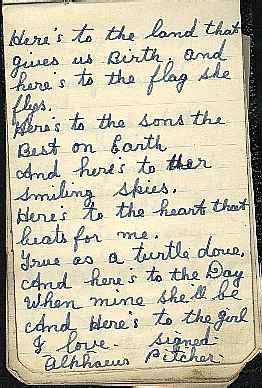 Here's to the land that
gives us Birth, and
here's to the flag she
flys.
Here's to the sons the
Best on Earth
And here's to her
smiling skies.
Here's to the heart that
beats for me.
True as a turtle dove,
And here's to the Day
When mine she'll be
And Here's to the girl
I love. signed
Alphaeus Pitcher